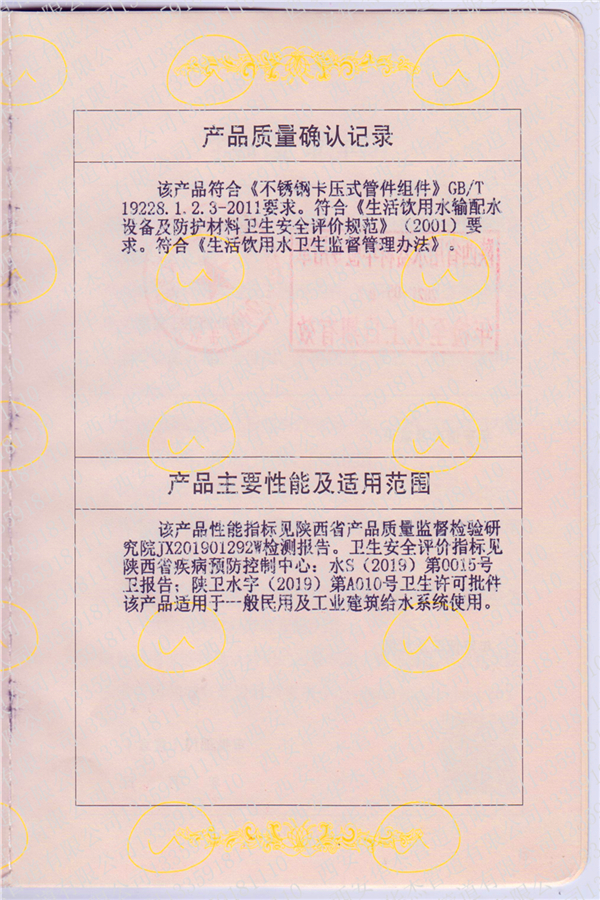 产品质量确认记录
该产品符合《不锈钢卡压式管件组件》GB/T
19228.1.2.3-2011要求。符合《生活饮用水输配水
设备及防护材料卫生安全评价规范》（2001）要
求。符合《生活饮用水卫生监督管理办法》。
产品主要性能及适用范围
该产品性能指标见陕西省产品质量监督检验研
究院JX201901292W检测报告。卫生安全评价指标见
陕西省疾病预防控制中心：水S（2019）第0015号
卫报告；陕卫水字（2019）第A010号卫生许可批件
该产品适用于一般民用及工业建筑给水系统使用。